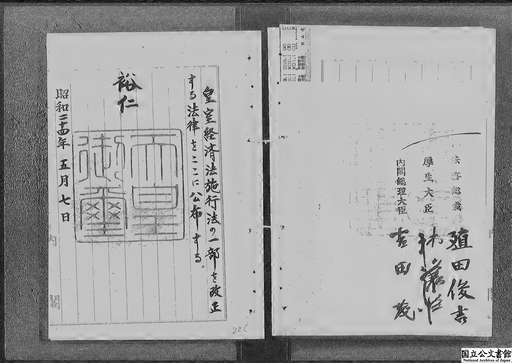 皇室経済法施行法の一部を改正
する法律をここに公布する。
裕仁
天皇
御璽
昭和二十四年五月七日
内閣
法務総裁 殖田俊吉
厚生大臣 林譲治
内閣総理大臣 吉田茂
国立公文書館
National Archives of Japan